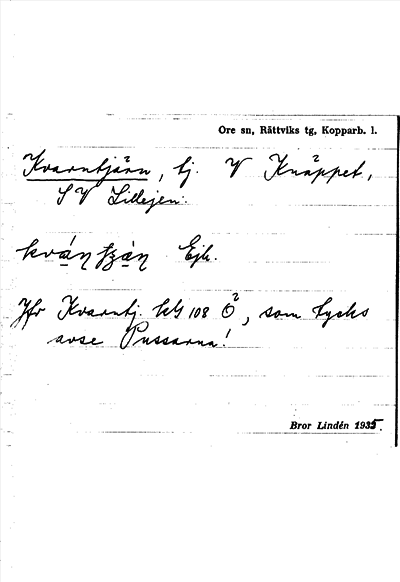 Ore sn, Rättviks tg, Kopparb. l.
Kvarntjärn, tj. V Knäppet,
SV Lillejen.
Ejk.
Jfr Kvarntj. kbl 108 Ö², som tycks
avse Pussarna!
Bror Lindén 1935.